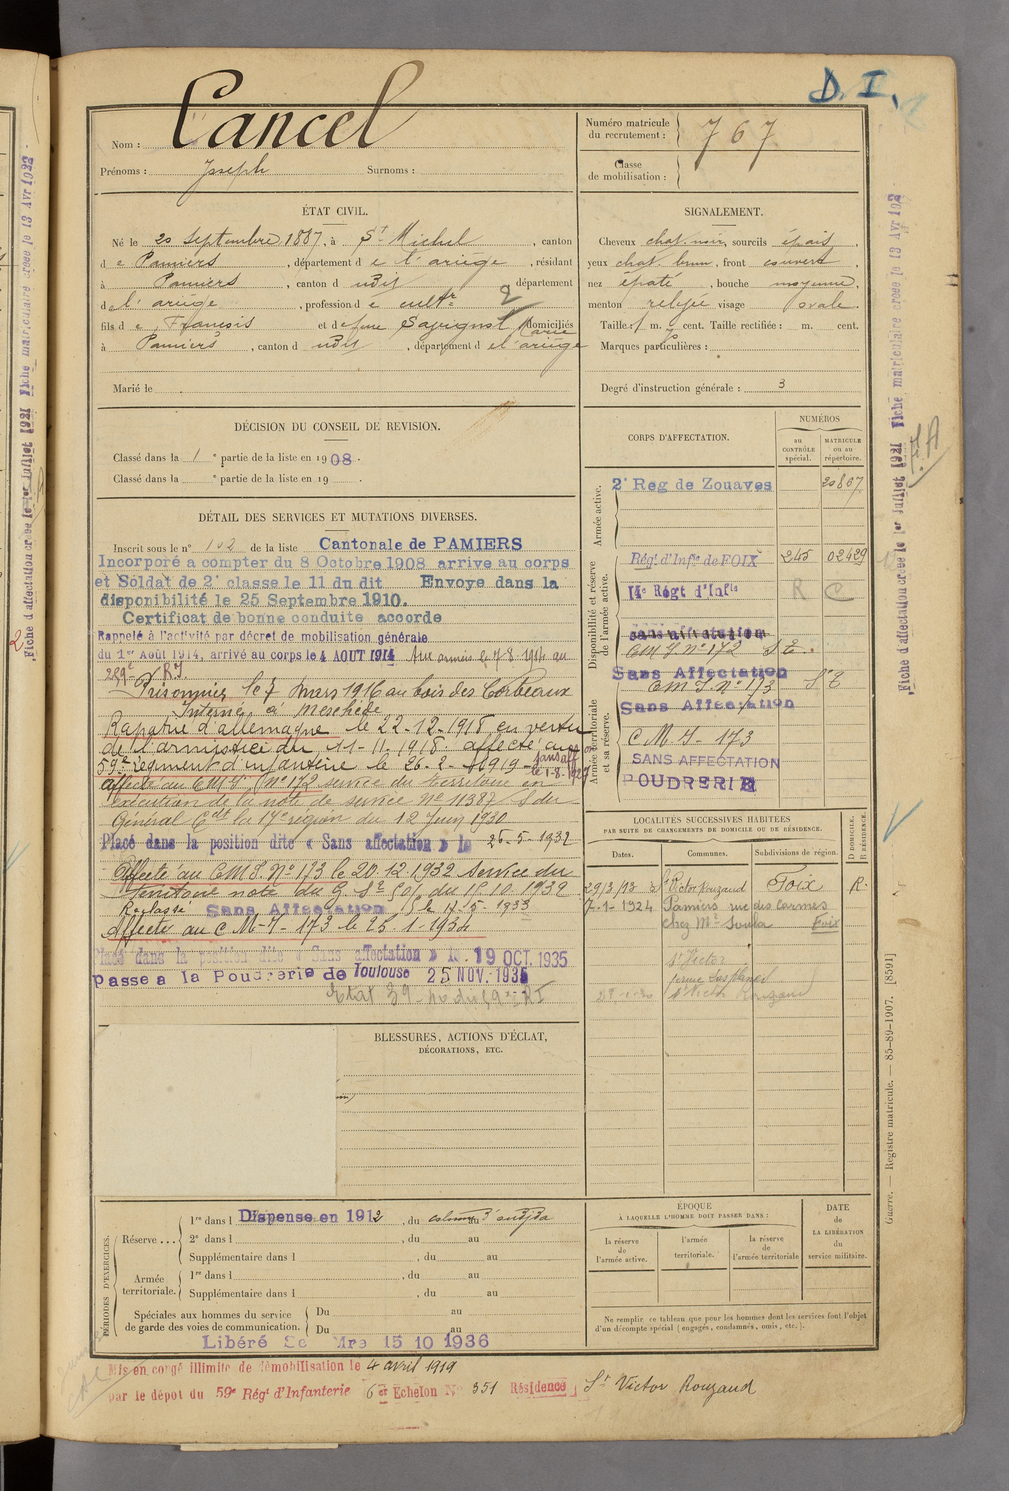 D. I.
Nom : Cancel
Prénoms : Joseph Surnoms :
Numéro matricule du recrutement : 767
Classe de mobilisation :
ÉTAT CIVIL.
Né le 20 septembre 1887, à St Michel, canton
de Pamiers, département de l'ariège, résidant
à Pamiers, canton d udit département
de l'ariège, profession de cultr
fils de Francois et de feue Savignol Marie domiciliés
à Pamiers, canton d udit, département de l'ariège
Marié le
SIGNALEMENT.
Cheveux chat. noir, sourcils épais,
yeux chat. brun, front couvert,
nez épaté, bouche moyenne,
menton relevé visage ovale
Taille : 1 m. cent. Taille rectifiée : m. cent.
Marques particulières :
Degré d'instruction générale : 3
DÉCISION DU CONSEIL DE REVISION.
Classé dans la 1e partie de la liste en 1908.
Classé dans la e partie de la liste en 19 .
DÉTAIL DES SERVICES ET MUTATIONS DIVERSES.
Inscrit sous le n° 102 de la liste Cantonale de PAMIERS
Incorporé a compter du 8 Octobre 1908 arrive au corps
et Soldat de 2e classe le 11 du dit Envoye dans la
disponibilité le 25 Septembre 1910.
Certificat de bonne conduite accorde
Rappelé à l'activité par décret de mobilisation générale
du 1er Août 1914, arrivé au corps le 4 AOUT 1914 Aux armées le 7-8-1914 au
259e R.I.
Prisonnier le 7 mars 1916 au bois des Corbeaux
Interné à Meschede
Rapatrié d'allemagne le 22-12-1918 en vertu
de l'armistice du 11-11-1918. affecté au
59e régiment d'infanterie le 26-2-1919- sans aff
le 1-8-1927
affecté au CMI N° 172 service du territoire en
exécution de la note de service N° 11387 du
Général Cdt la 17e région du 12 Juin 1930
Placé dans la position dite « Sans affectation » le 26-5-1932
Affecté au CMI. N° 173 le 20.12.1932 Service du
Territoire note du G. 15.10.1932
Replassé Sans Affectation le 11-5-1933
Affecté au C M-I-173 le 25-1-1934
Placé dans la position dite « Sans affectation » le 19 OCT. 1935
Passe a la Poudrerie de Toulouse 25 NOV. 1935
CORPS D'AFFECTATION.
NUMÉROS
au CONTRÔLE spécial.
MATRICULE ou au répertoire.
Armée active.
2e Reg de Zouaves 20807
Disponibilité et réserve de l'armée active.
Régt d'Infie de FOIX 245 02429
14e Régt d'Infie R C
Sans affectation
CMI n° 172 S E.
Sans Affectation
Armée territoriale et sa réserve.
C M I. N° 173
Sans Affectation
C M-I-173
SANS AFFECTATION
POUDRERIE
LOCALITÉS SUCCESSIVES HABITÉES
PAR SUITE DE CHANGEMENTS DE DOMICILE OU DE RÉSIDENCE.
Dates. Communes. Subdivisions de région. D DOMICILE. R RÉSIDENCE.
St Victor Rouzaud Foix R.
7-1-1924 Pamiers rue des Carmes
chez Mr Soula Foix
St Victor
St Victor Rouzaud
BLESSURES, ACTIONS D'ÉCLAT,
DÉCORATIONS, ETC.
PÉRIODES D'EXERCICES.
Réserve ...
1re dans l Dispense en 1912, du au
2e dans l , du au
Supplémentaire dans l , du au
Armée territoriale.
1re dans l , du au
Supplémentaire dans l , du au
Spéciales aux hommes du service de garde des voies de communication.
Du au
Du au
Libéré Se Mre 15 10 1936
ÉPOQUE
À LAQUELLE L'HOMME DOIT PASSER DANS :
la réserve de l'armée active.
l'armée territoriale.
la réserve de l'armée territoriale
DATE de LA LIBÉRATION du service militaire.
Ne remplir ce tableau que pour les hommes dont les services font l'objet
d'un décompte spécial (engagés, condamnés, omis, etc.).
Mis en congé illimité de démobilisation le 4 avril 1919
par le dépot du 59e Régt d'Infanterie 6e Echelon N° 351 Résidence St Victor Rouzaud
Fiche d'affectation créée le 1er Juillet 1921 Fiche matriculaire créée le 13 Avr 192
Guerre. — Registre matricule. — 85-89-1907. [8591]
Fiche d'affectation créée le 1er Juillet 1921 Fiche matriculaire créée le 13 Avr 1922